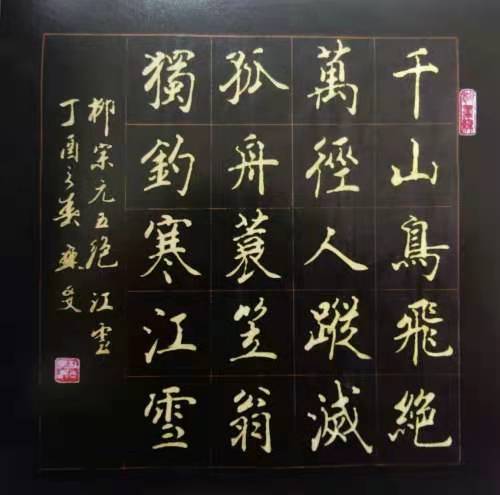 千山鳥飛絕
萬徑人蹤滅
孤舟蓑笠翁
獨釣寒江雪
柳宗元五絕江雪
丁酉之